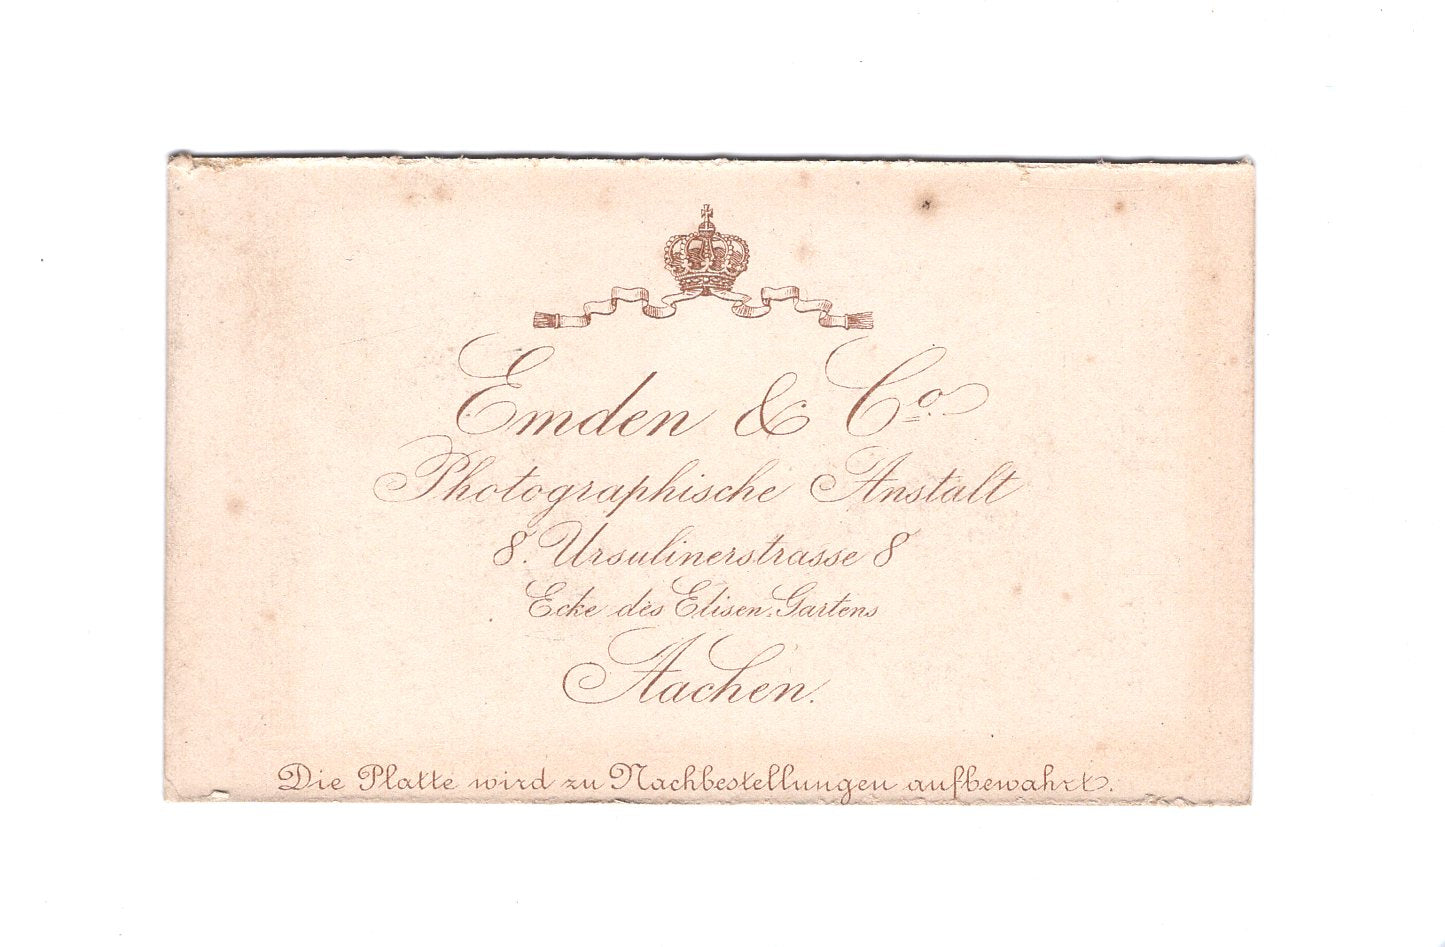 Emden & Co.
Photographische Anstalt
8. Ursulinerstrasse 8
Ecke des Elisen-Gartens
Aachen.
Die Platte wird zu Nachbestellungen aufbewahrt.